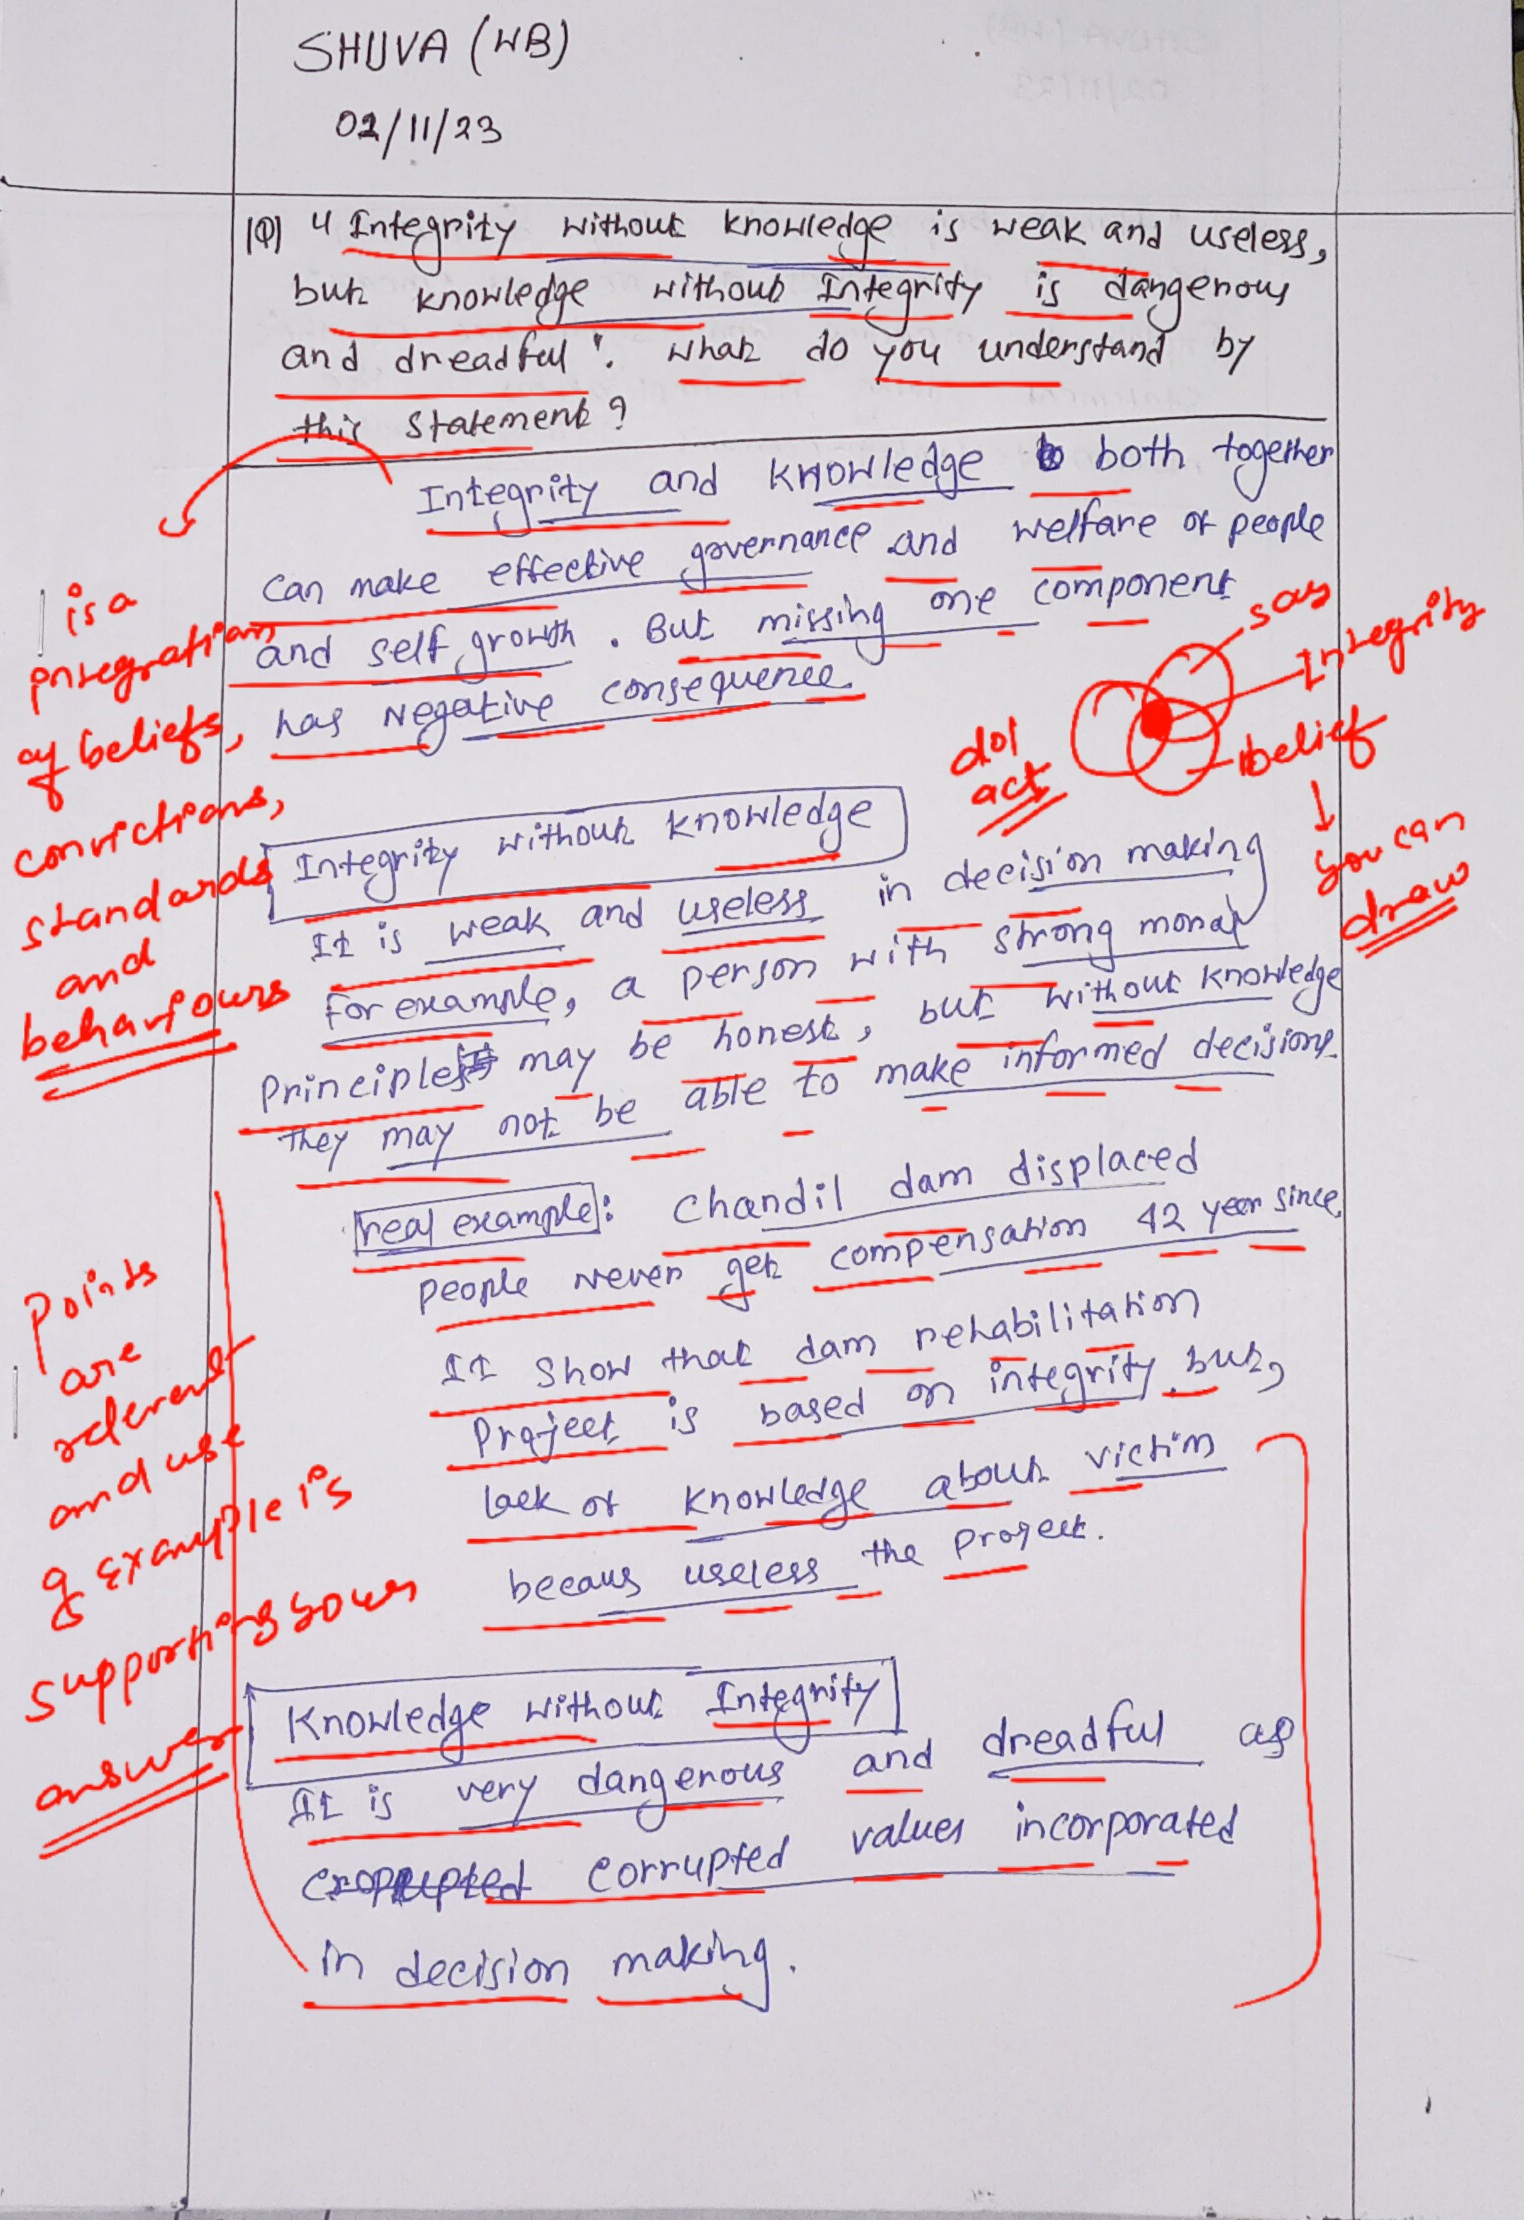 SHUVA (WB)
02/11/23
1Q) " Integrity without knowledge is weak and useless,
but knowledge without Integrity is dangerous
and dreadful". What do you understand by
this statement?
Integrity and knowledge both together
can make effective governance and welfare of people
and self growth. But missing one component
has Negative consequence.
is a
integration
of beliefs,
convictions,
standards
and
behaviours
say
Integrity
belief
do/
act
you can
draw
Integrity without knowledge
It is weak and useless in decision making
For example, a person with strong moral
principles may be honest, but without knowledge
they may not be able to make informed decisions.
real example: Chandil dam displaced
people never get compensation 42 year since,
It show that dam rehabilitation
project is based on integrity but,
lack of knowledge about victim
becaus useless the project.
Points
are
relevant
and use
of example is
supporting your
answer
Knowledge without Integrity
It is very dangerous and dreadful as
corrupted values incorporated
in decision making.